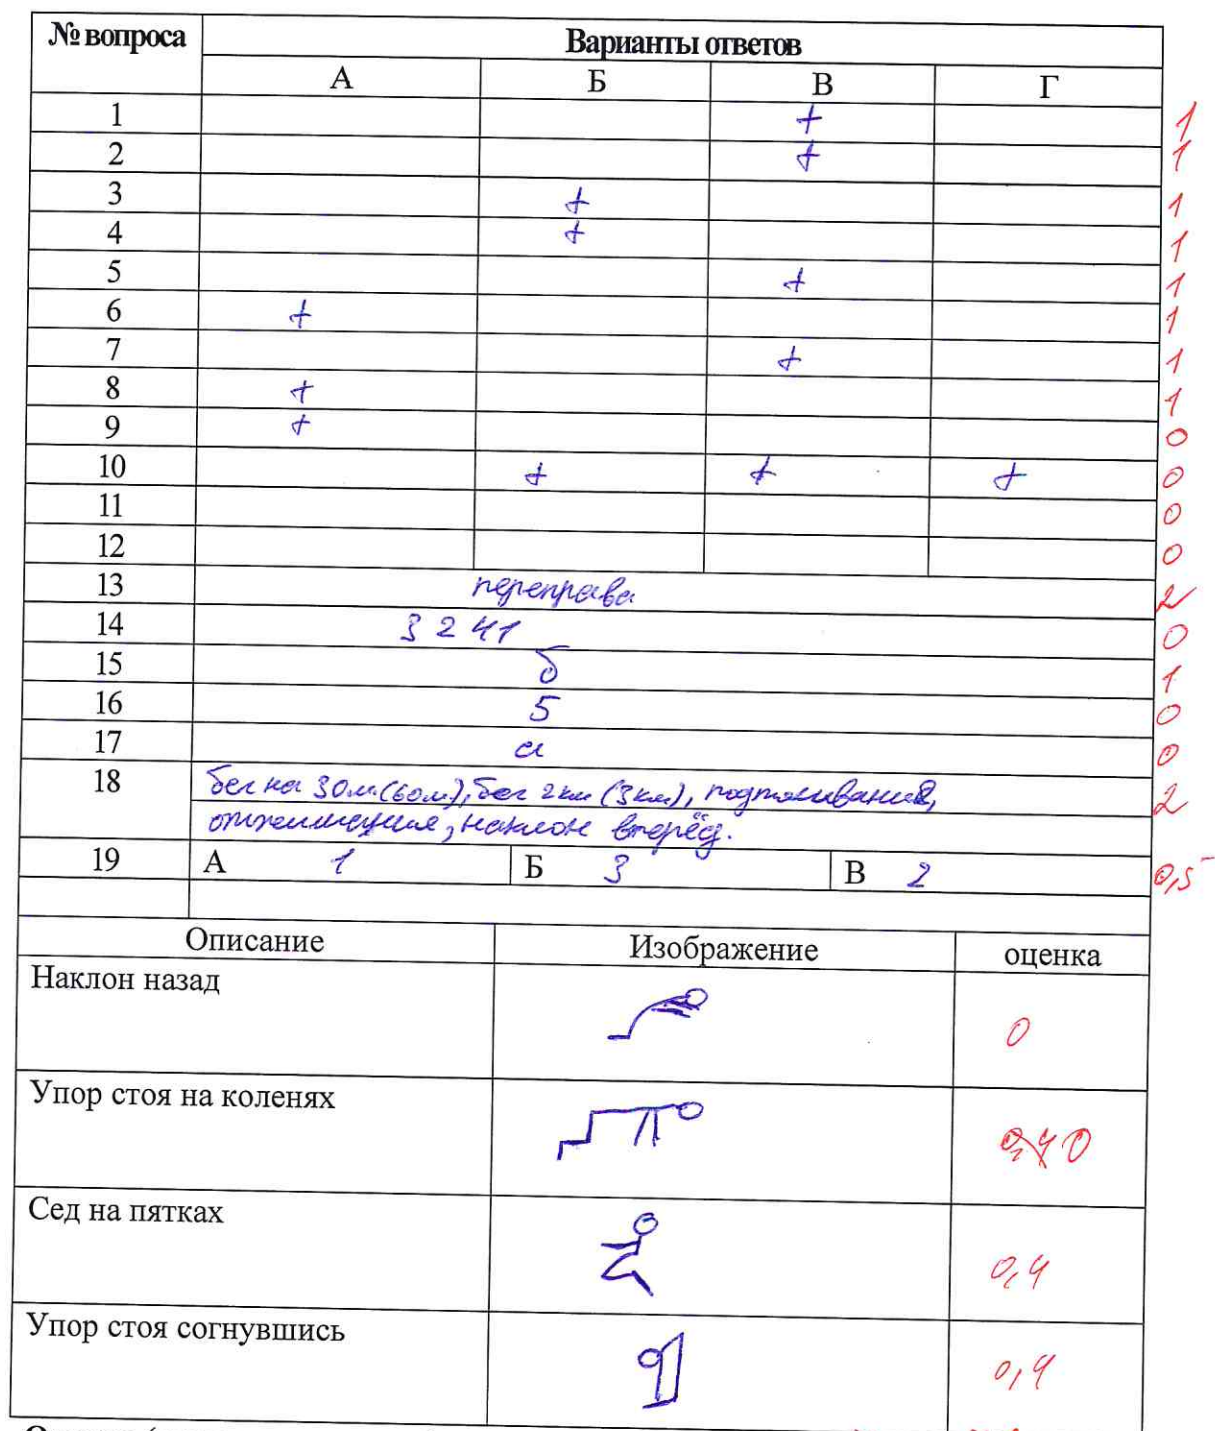 № вопроса Варианты ответов
А Б В Г
1 + 1
2 + 1
3 + 1
4 + 1
5 + 1
6 + 1
7 + 1
8 + 1
9 + 0
10 + + + 0
11 0
12 0
13 переправа 2
14 3 2 4 1 0
15 б 1
16 5 0
17 а 0
18 бег на 30м.(60м), бег 2км (3км), подтягивание, 2
отжимания, наклон вперёд.
19 А 1 Б 3 В 2 0,5
Описание Изображение оценка
Наклон назад 0
Упор стоя на коленях 0
Сед на пятках 0,4
Упор стоя согнувшись 0,4